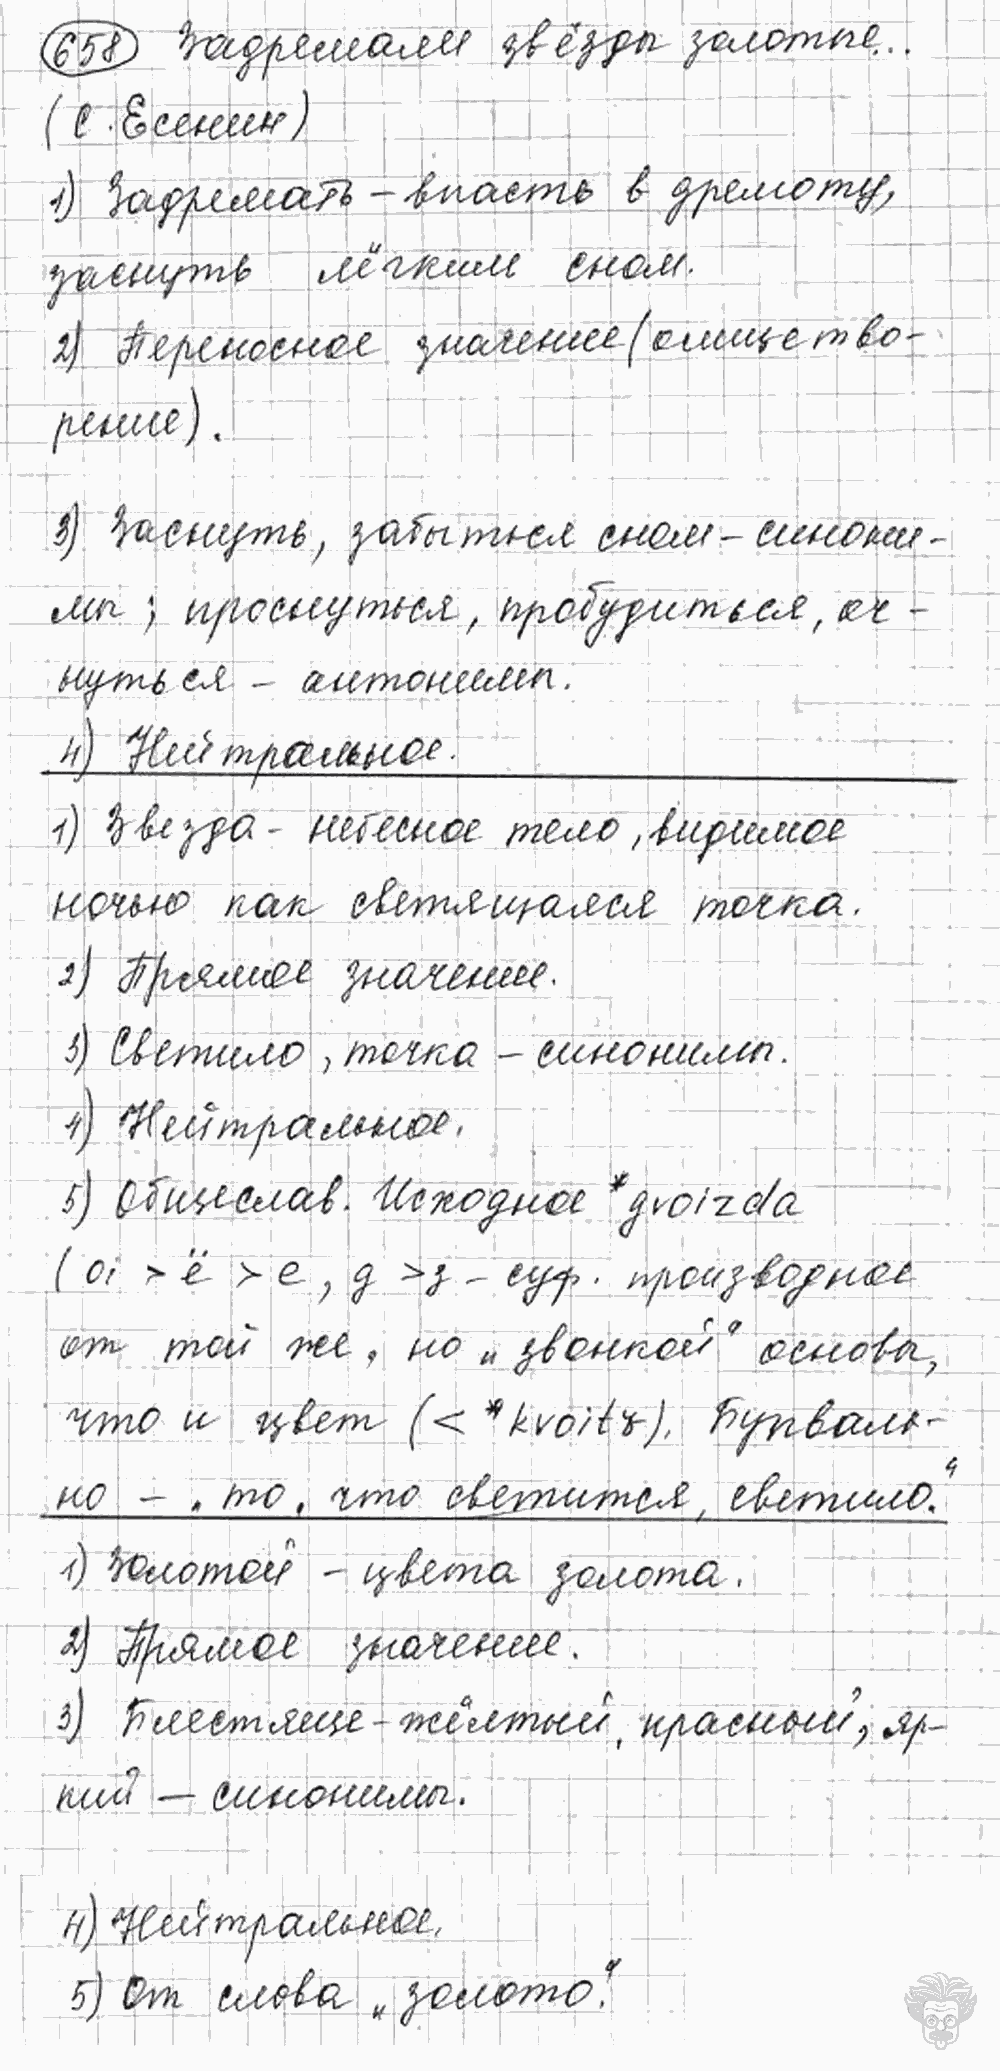 658 Задремали звёзды золотые...
(С. Есенин)
1) Задремать – впасть в дремоту,
заснуть лёгким сном.
2) Переносное значение (олицетво-
рение).
3) Заснуть, забыться сном – синони-
мы; проснуться, пробудиться, оч-
нуться – антонимы.
4) Нейтральное.
1) Звезда – небесное тело, видимое
ночью как светящаяся точка.
2) Прямое значение.
3) Светило, точка – синонимы.
4) Нейтральное.
5) Общеслав. Исходное *gvoizda
(oi > ё > е, g > з – суф. производное
от той же, но „звонкой“ основы,
что и цвет (< *kvoitъ). Букваль-
но – „то, что светится, светило.“
1) Золотой – цвета золота.
2) Прямое значение.
3) Блестяще-жёлтый, красный, яр-
кий – синонимы.
4) Нейтральное.
5) От слова „золото“.